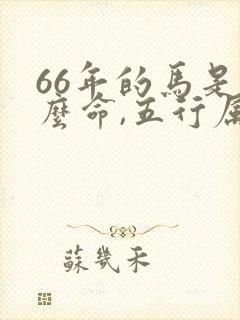 66年的馬是
麼命,五行屬
蘇幾禾